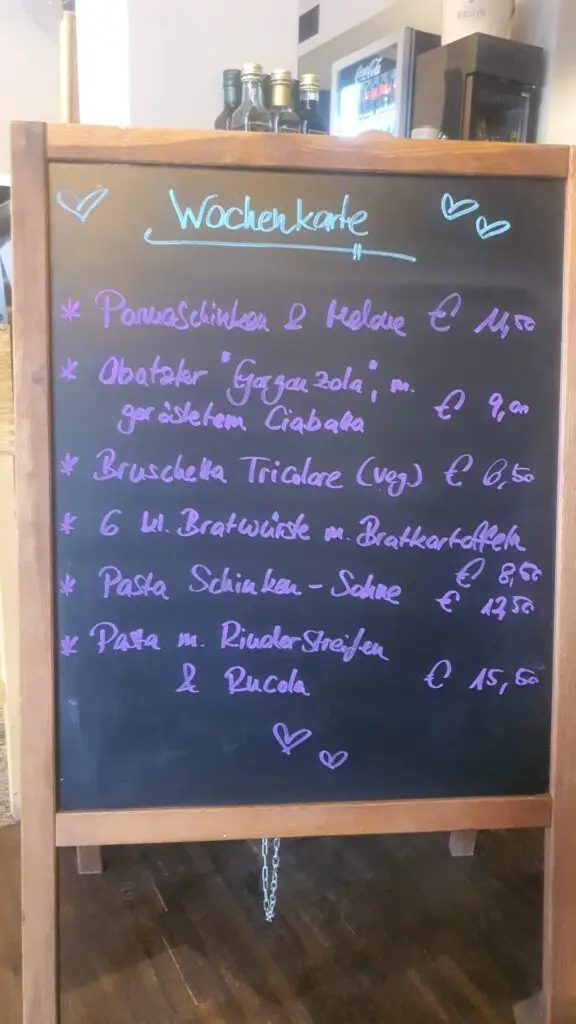 Coca-Cola
Wochenkarte
* Parmaschinken & Melone € 11,50
* Obatzter "Gorgonzola", m.
geröstetem Ciabata € 9,00
* Bruschetta Tricolore (veg) € 6,50
* 6 kl. Bratwürste m. Bratkartoffeln
€ 8,50
* Pasta Schinken-Sahne € 12,50
* Pasta m. Rinderstreifen
& Rucola € 15,50